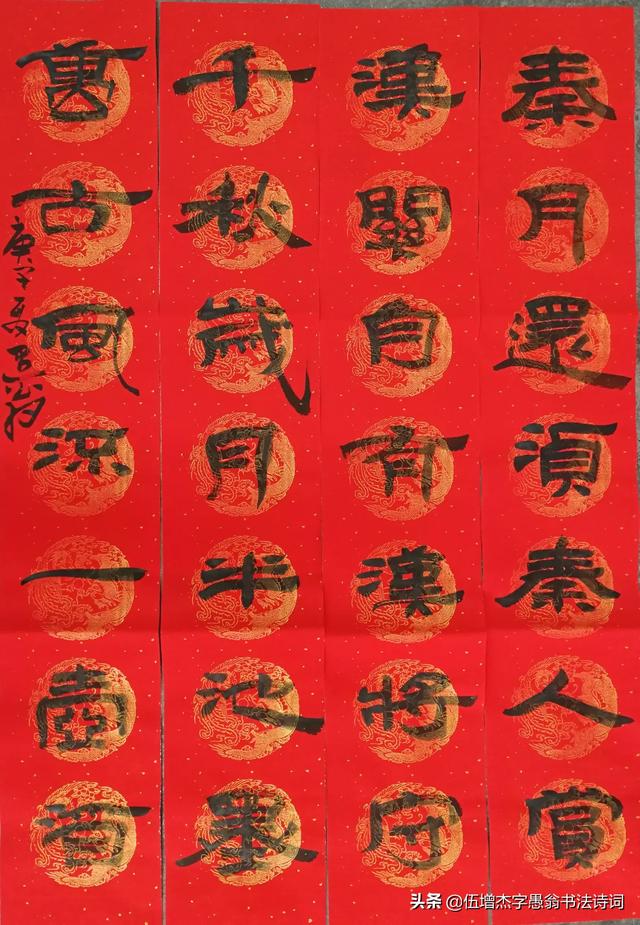 秦月還湏秦人賞
漢關自有漢將守
千秋歲月半池墨
萬古風涼一壺酒
庚子夏
头条 @伍增杰字愚翁书法诗词